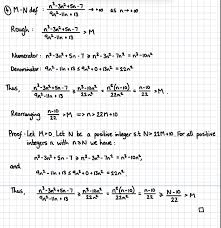 ④ M-N def : (n³-3n²+5n-7)/(9n²-11n+13) → +∞ as n→+∞
Rough : (n³-3n²+5n-7)/(9n²-11n+13) > M
Numerator: n³-3n²+5n-7 ≥ n³-3n²-7n² = n³-10n²
Denominator: 9n²-11n+13 ≤ 9n²+0+13n² = 22n²
Thus, (n³-3n²+5n-7)/(9n²-11n+13) ≥ (n³-10n²)/(22n²) = (n²(n-10))/(22n²) = (n-10)/22 > M.
Rearranging (n-10)/22 > M => n > 22M+10
Proof: Let M>0. Let N be a positive integer s.t N> 22M+10. For all positive
integers n with n≥N we have:
n³-3n²+5n-7 ≥ n³-3n²-7n² = n³-10n²,
and
9n²-11n+13 ≤ 9n²+0+13n² = 22n²
Thus, (n³-3n²+5n-7)/(9n²-11n+13) ≥ (n³-10n²)/(22n²) = (n²(n-10))/(22n²) = (n-10)/22 ≥ (N-10)/22 > M.